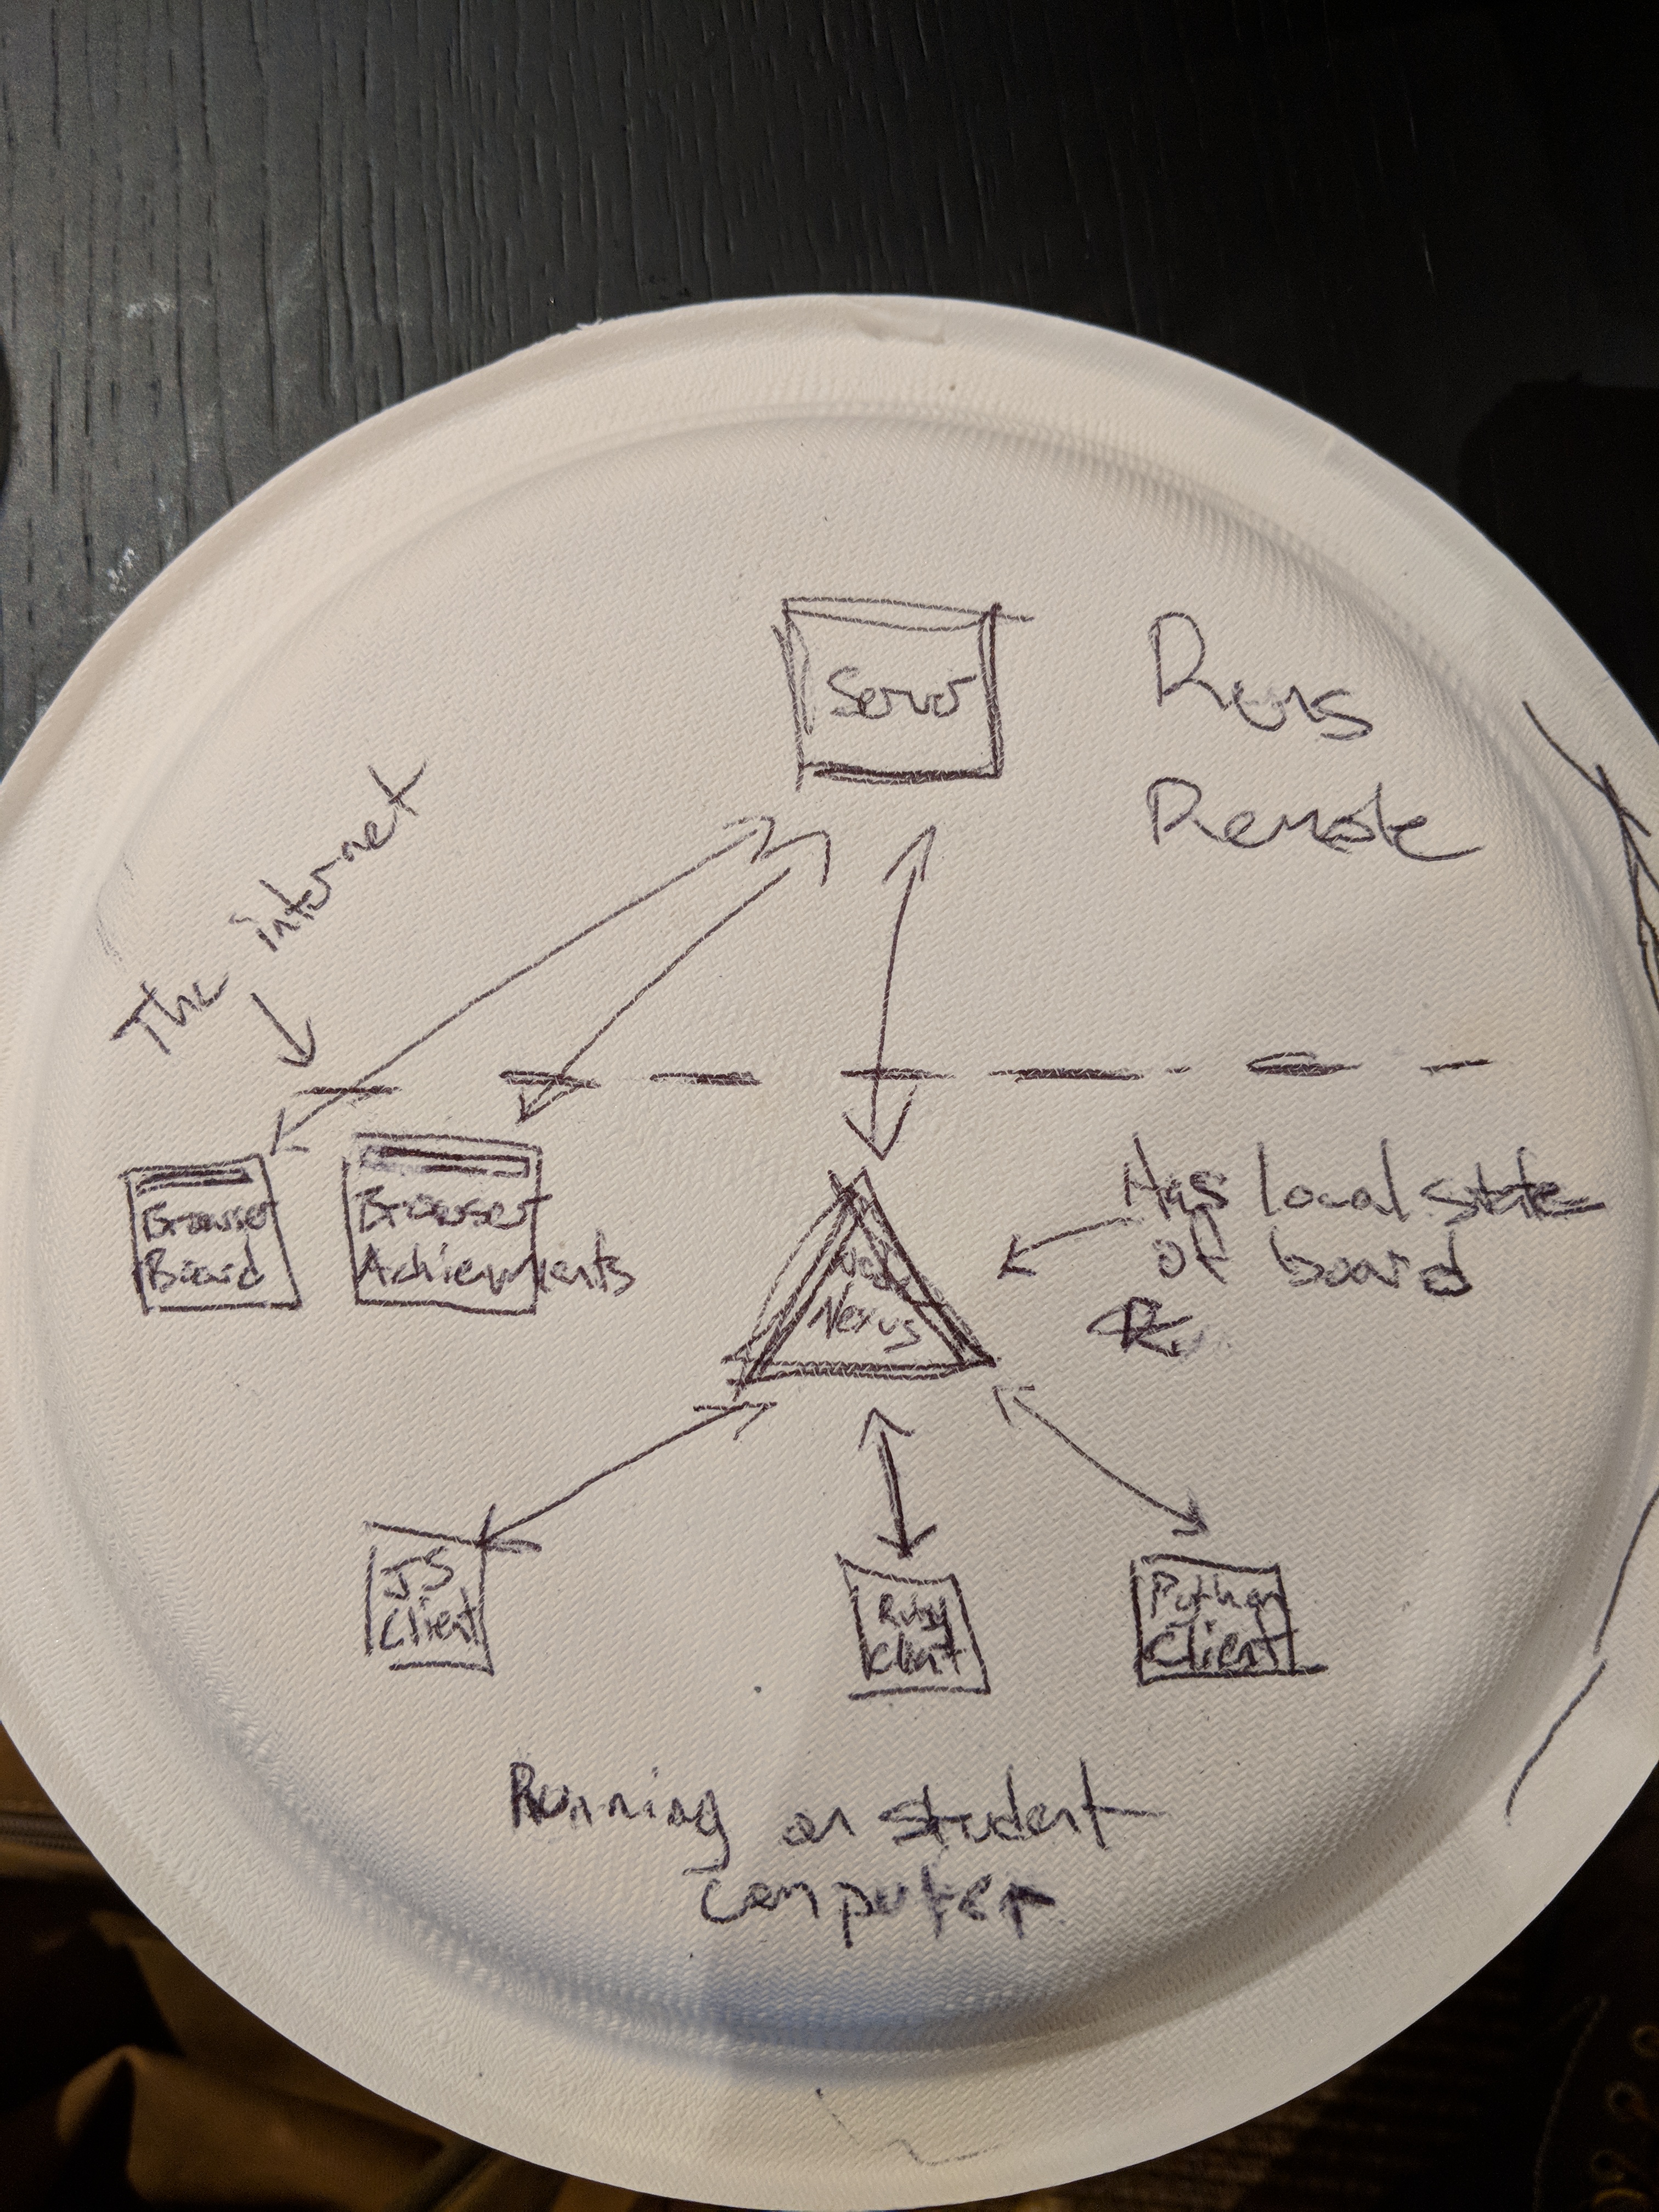 Server
Runs
Remote
The internet
Browser
Board
Browser
Achievements
Node
Nexus
Has local state
of board
JS
Client
Ruby
Client
Python
Client
Running on student
computer